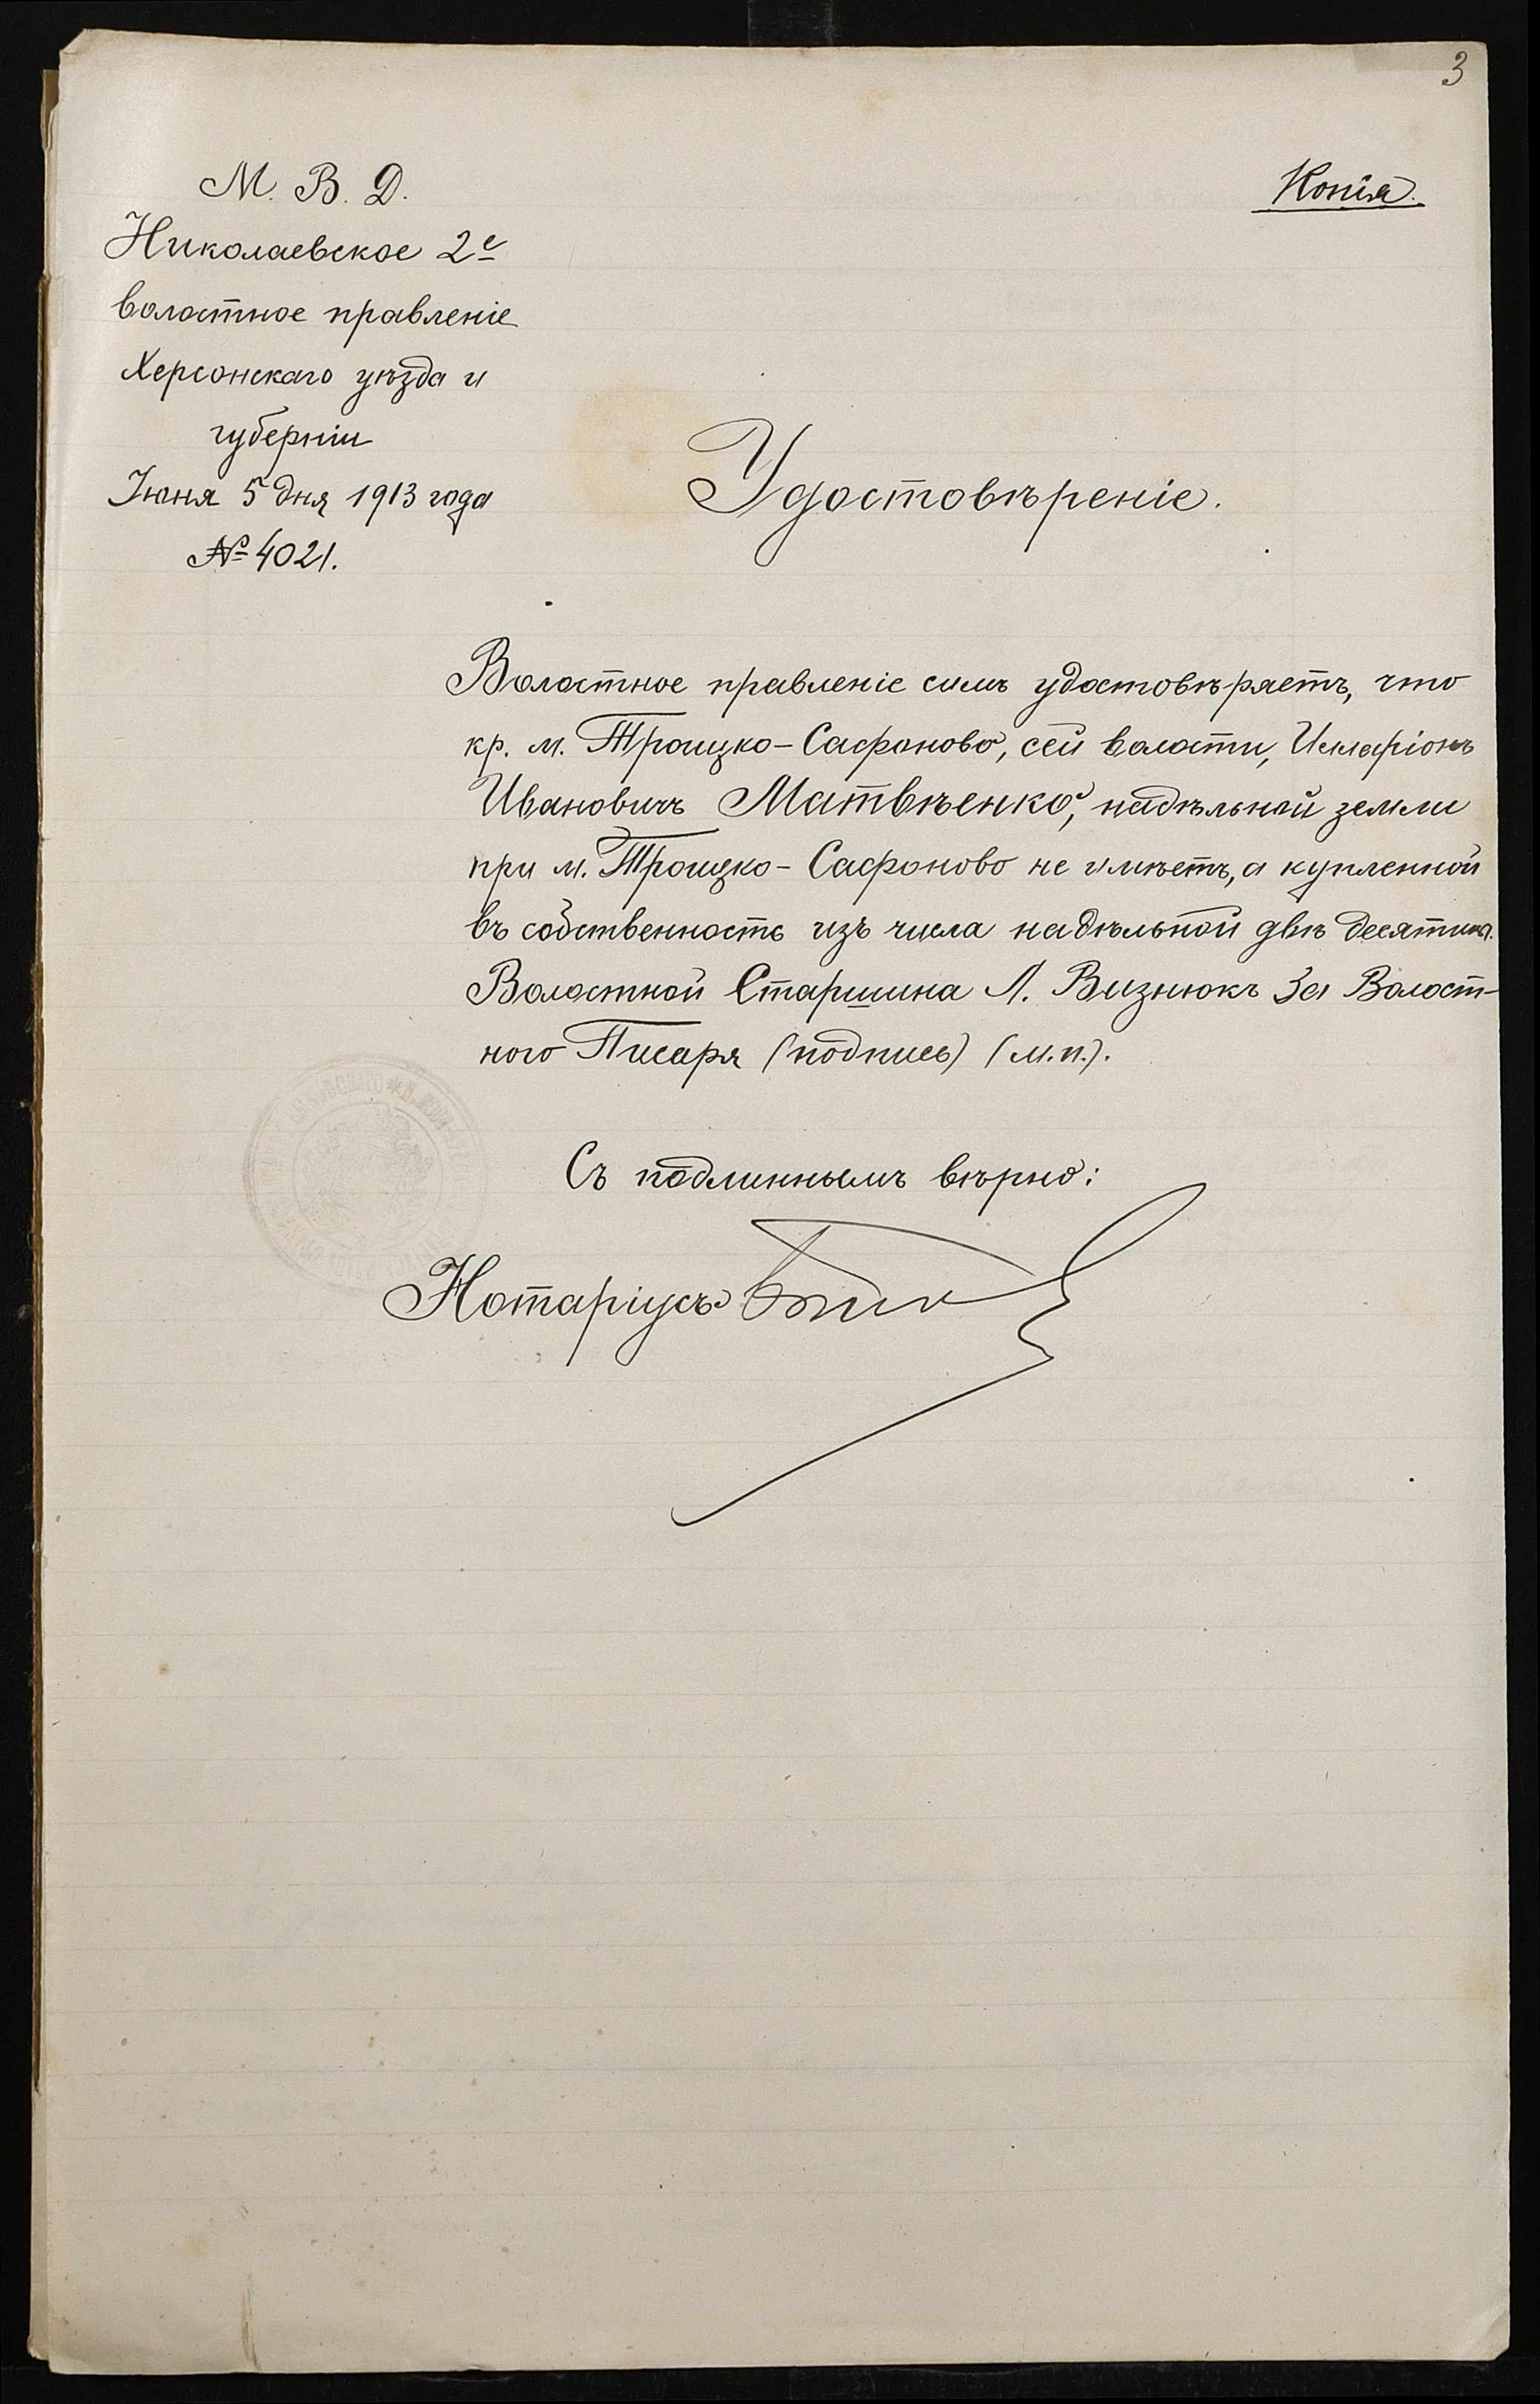 3
М. В. Д.
Копія.
Николаевское 2е
волостное правленіе
Херсонскаго уѣзда и
губерніи
Іюня 5 дня 1913 года
№ 4021.
Удостовѣреніе.
Волостное правленіе симъ удостовѣряетъ, что
кр. м. Троицко-Сафоново, сей волости, Илларіонъ
Ивановичъ Матвѣенко, надѣльной земли
при м. Троицко-Сафоново не имѣетъ, а купленной
въ собственность изъ числа надѣльной двѣ десятины.
Волостной Старшина Л. Визнюкъ За Волост-
ного Писаря (подпись) (м.п.).
Съ подлиннымъ вѣрно:
Нотаріусъ